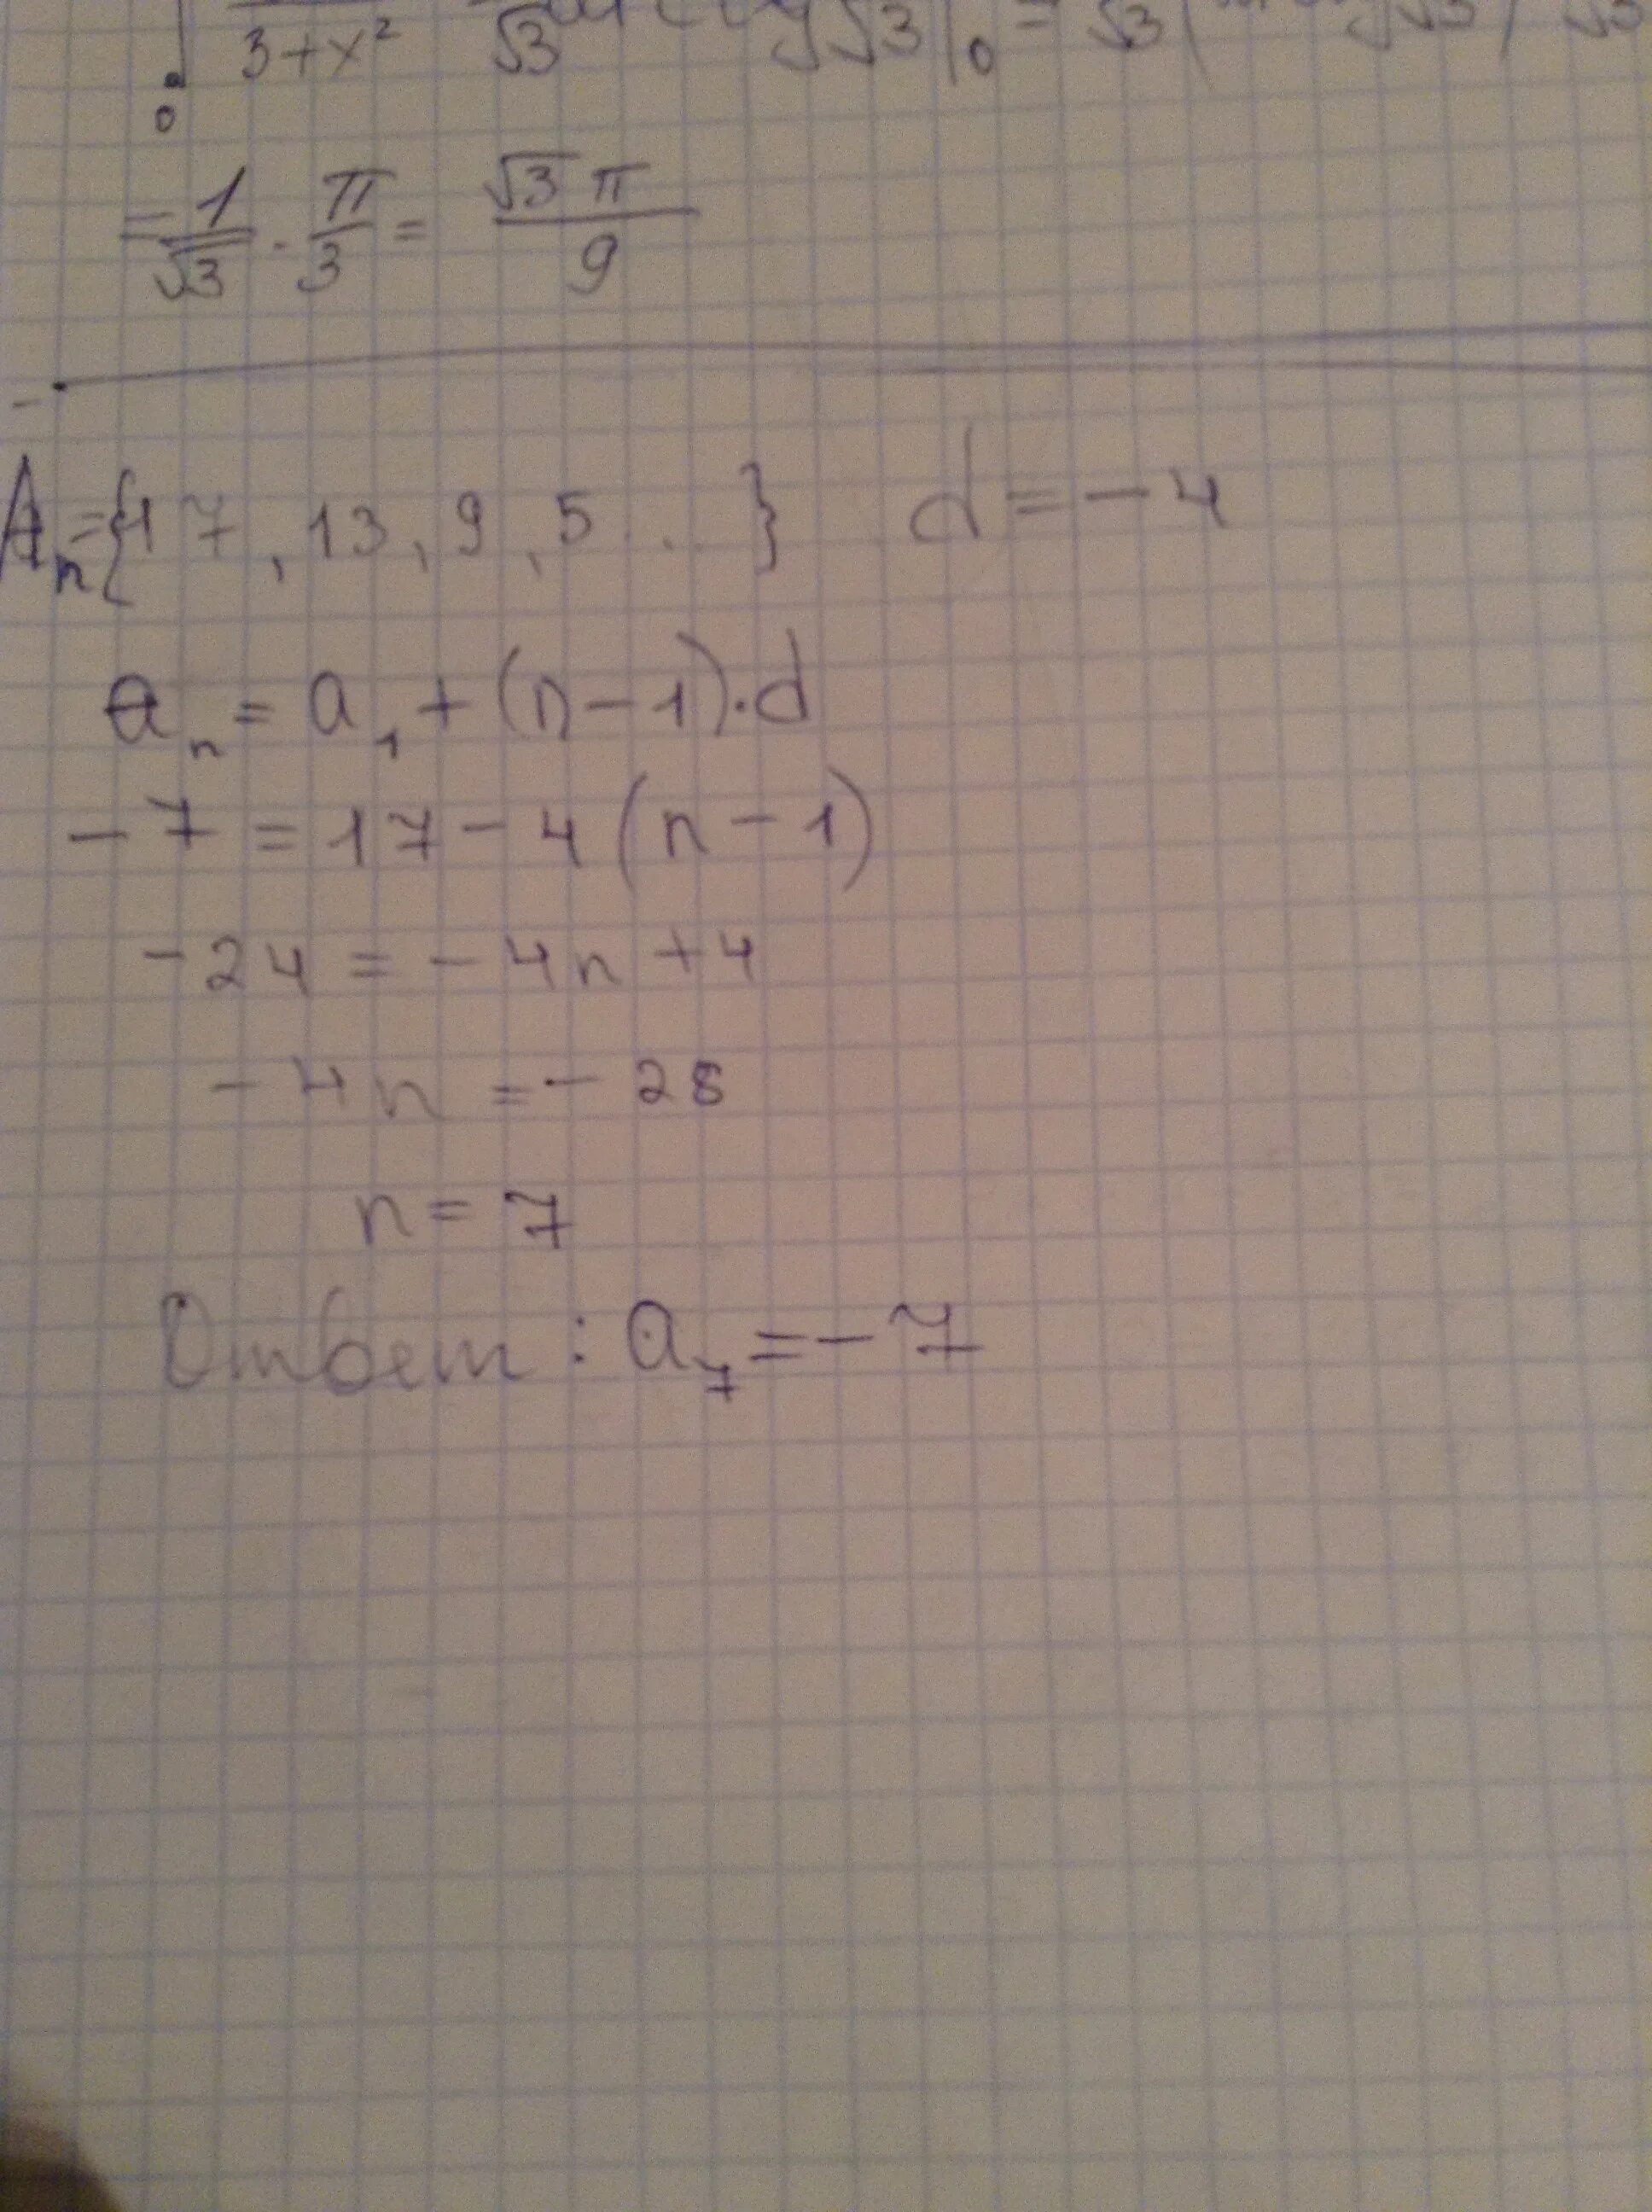 0
3+x² √3 √3|₀ = √3( √3) √3
= 1/√3 · π/3 = √3 π/9
Aₙ={17, 13, 9, 5 ...} d=-4
aₙ = a₁ + (n-1)·d
-7 = 17-4(n-1)
-24 = -4n+4
-4n = -28
n = 7
Ответ: a₇ = -7